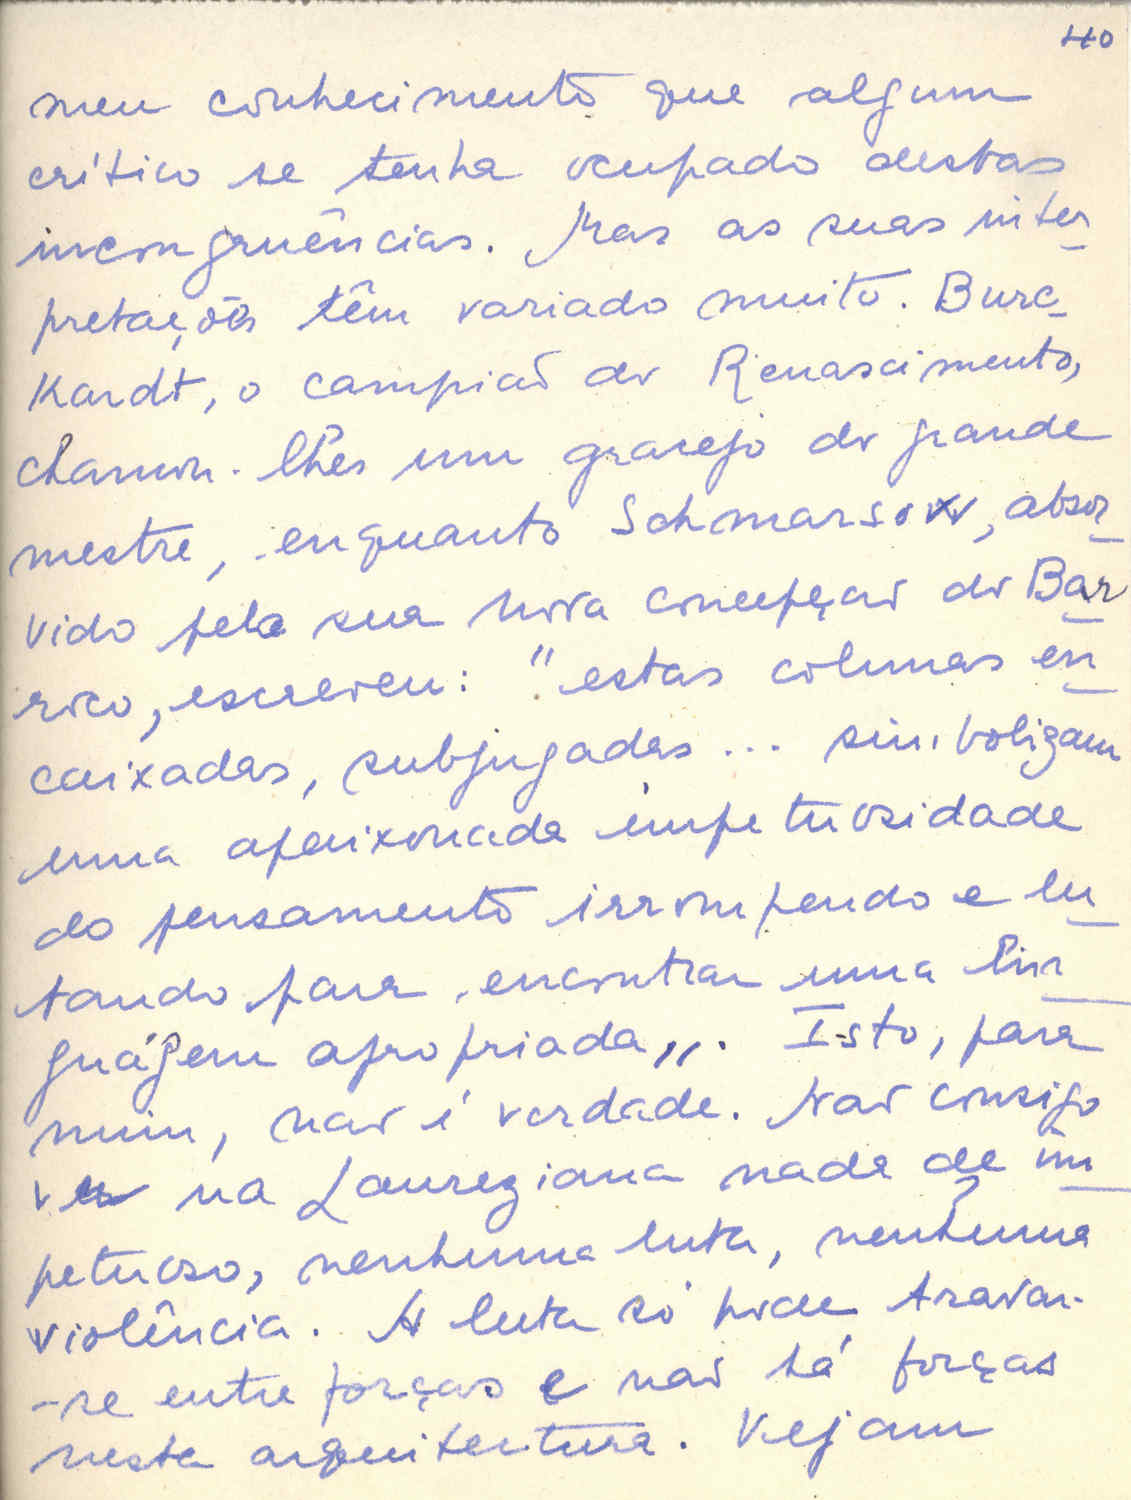 40
meu conhecimento que algum
crítico se tenha ocupado destas
incongruências. Mas as suas inter_
pretações têm variado muito. Burc_
Kardt, o campião do Renascimento,
chamou-lhes um gracejo do grande
mestre, enquanto Schmarsow, absor_
vido pela sua nova concepção do Bar_
roco, escreveu: "estas colunas en_
caixadas, subjugadas... simbolizam
uma apaixonada impetuosidade
do pensamento irrompendo e lu_
tando para encontrar uma lin_
guágem apropriada„. Isto, para
mim, não é verdade. Não consigo
ver na Laureziana nada de im_
petuoso, nenhuma luta, nenhuma
violência. A luta só pode travar-
-se entre forças e não há forças
nesta arquitectura. Vejam